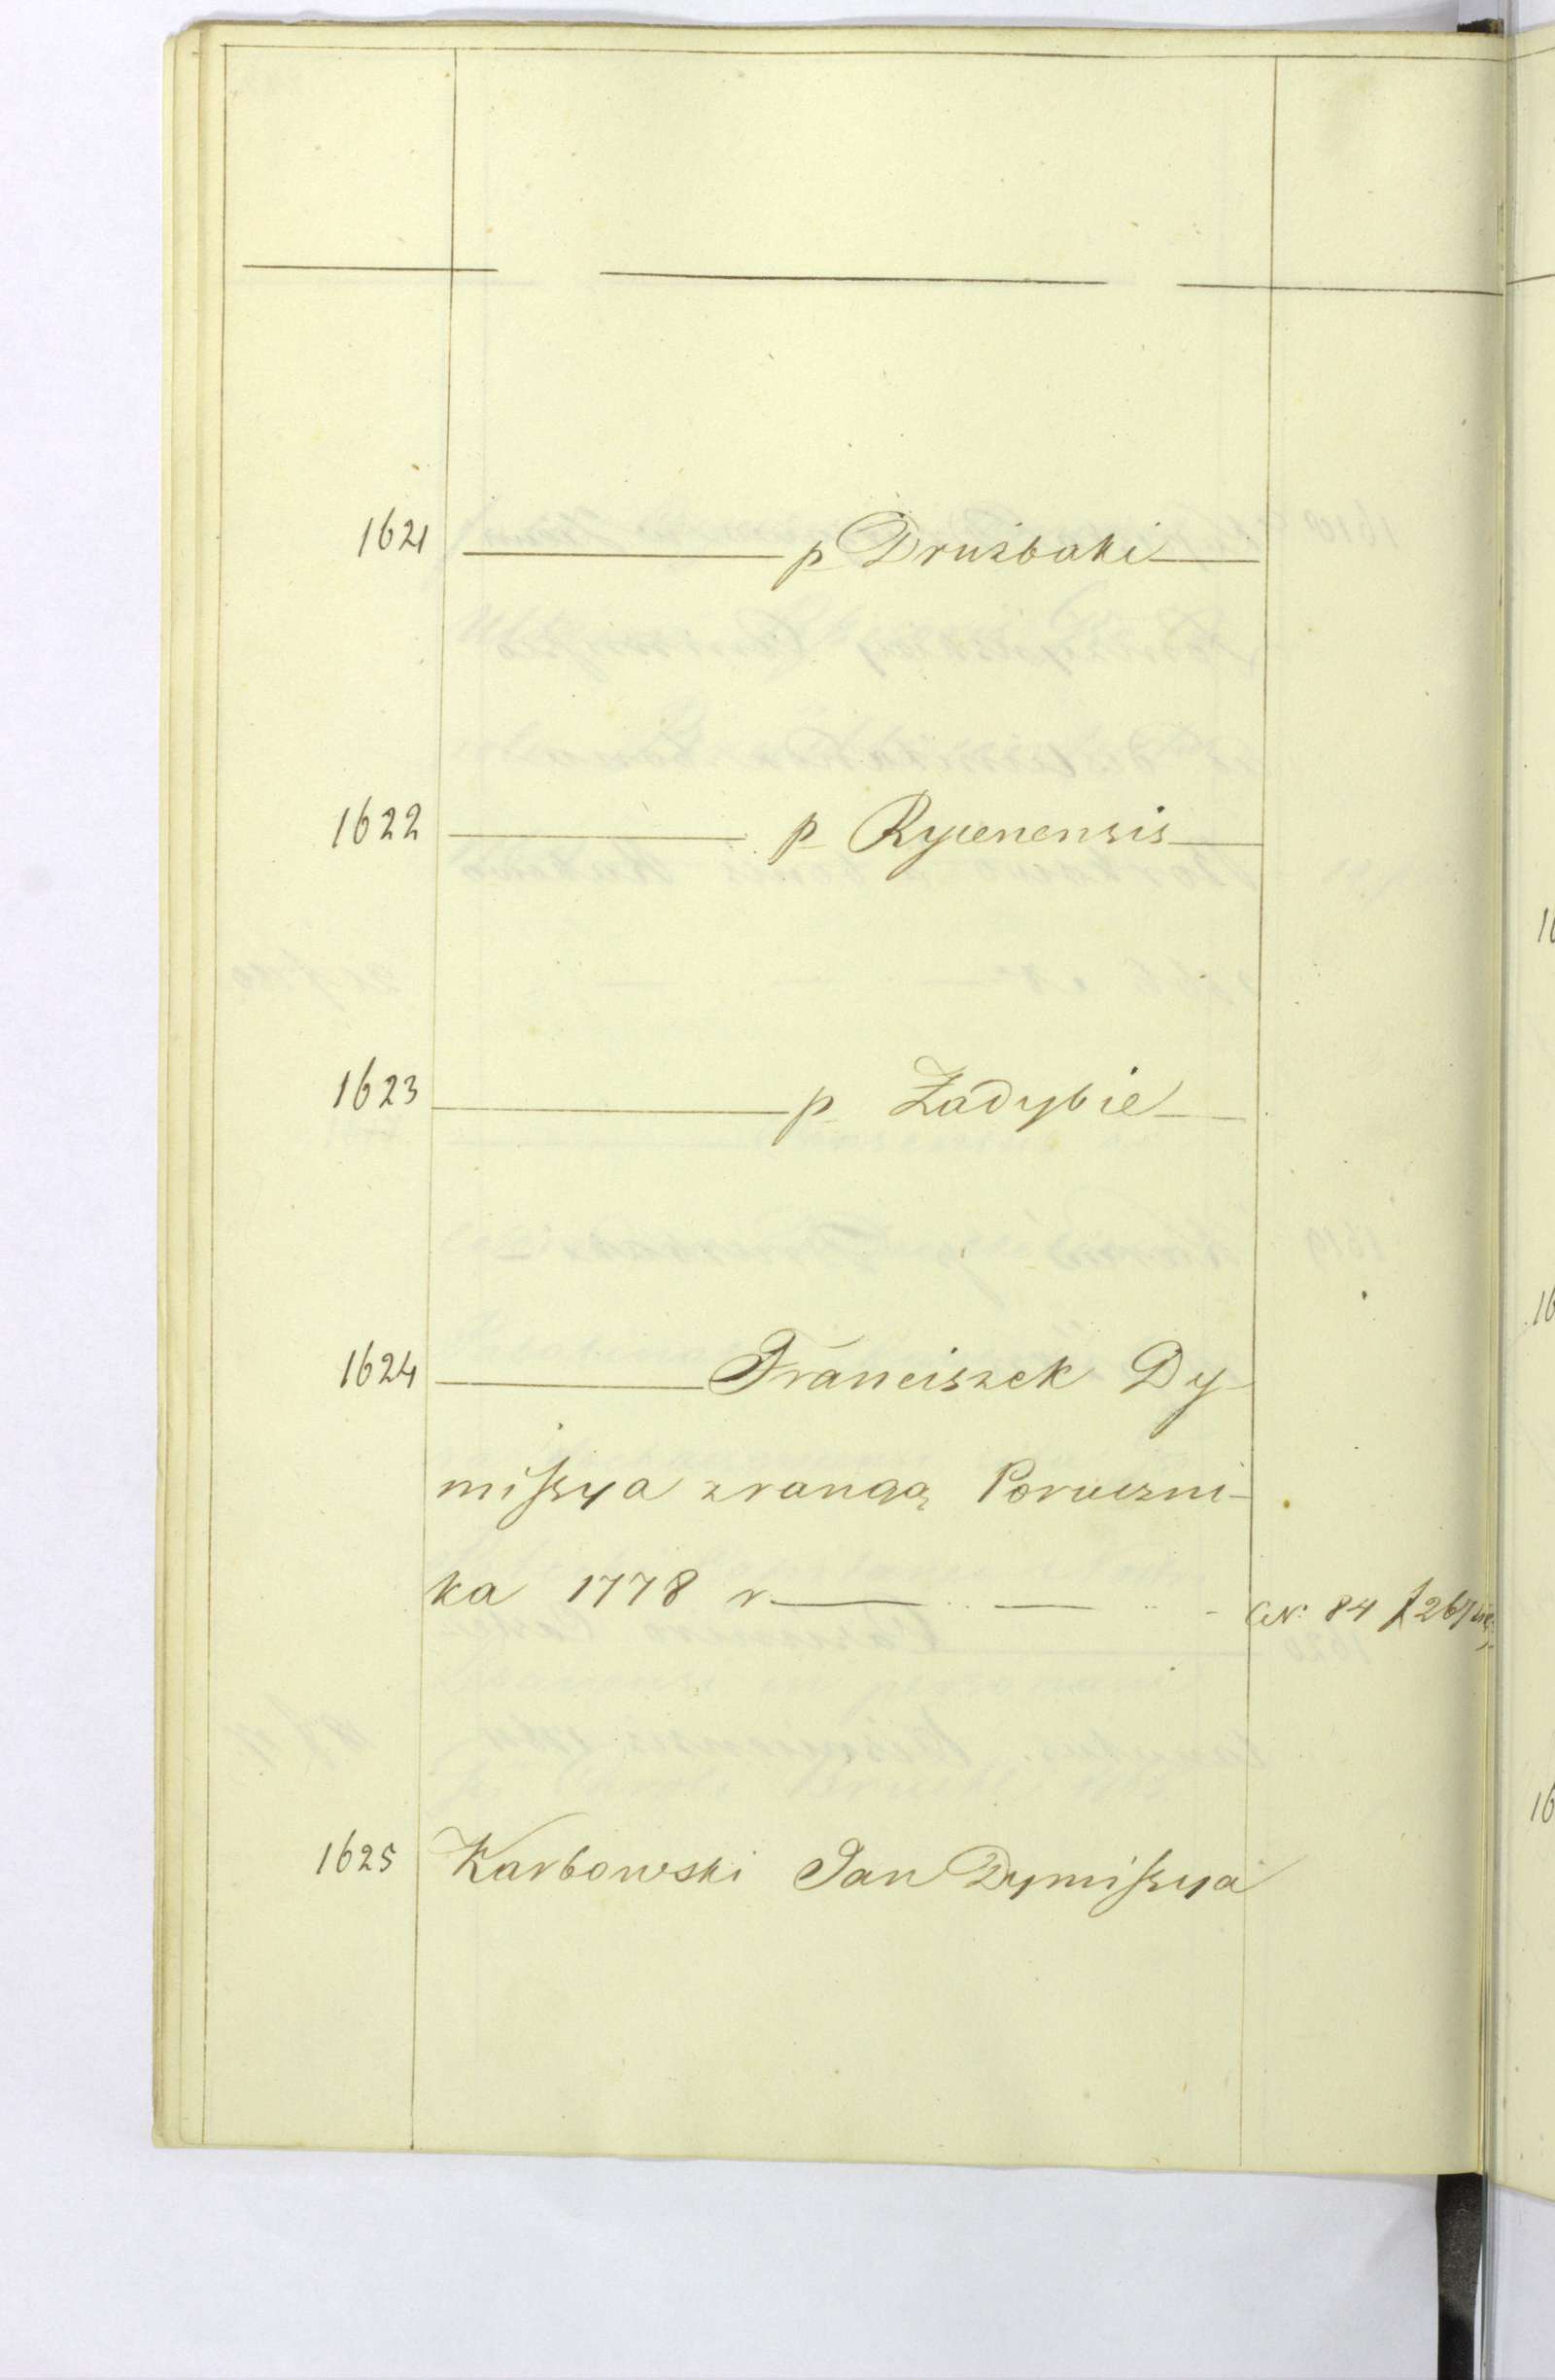 1621 p Drużbaki
1622 p Rycenensis
1623 p Zadybie
1624 Franciszek Dy-
missya z rangą Poruczni-
ka 1778 r
N: 84 f 267
1625 Karbowski Jan Dymissya